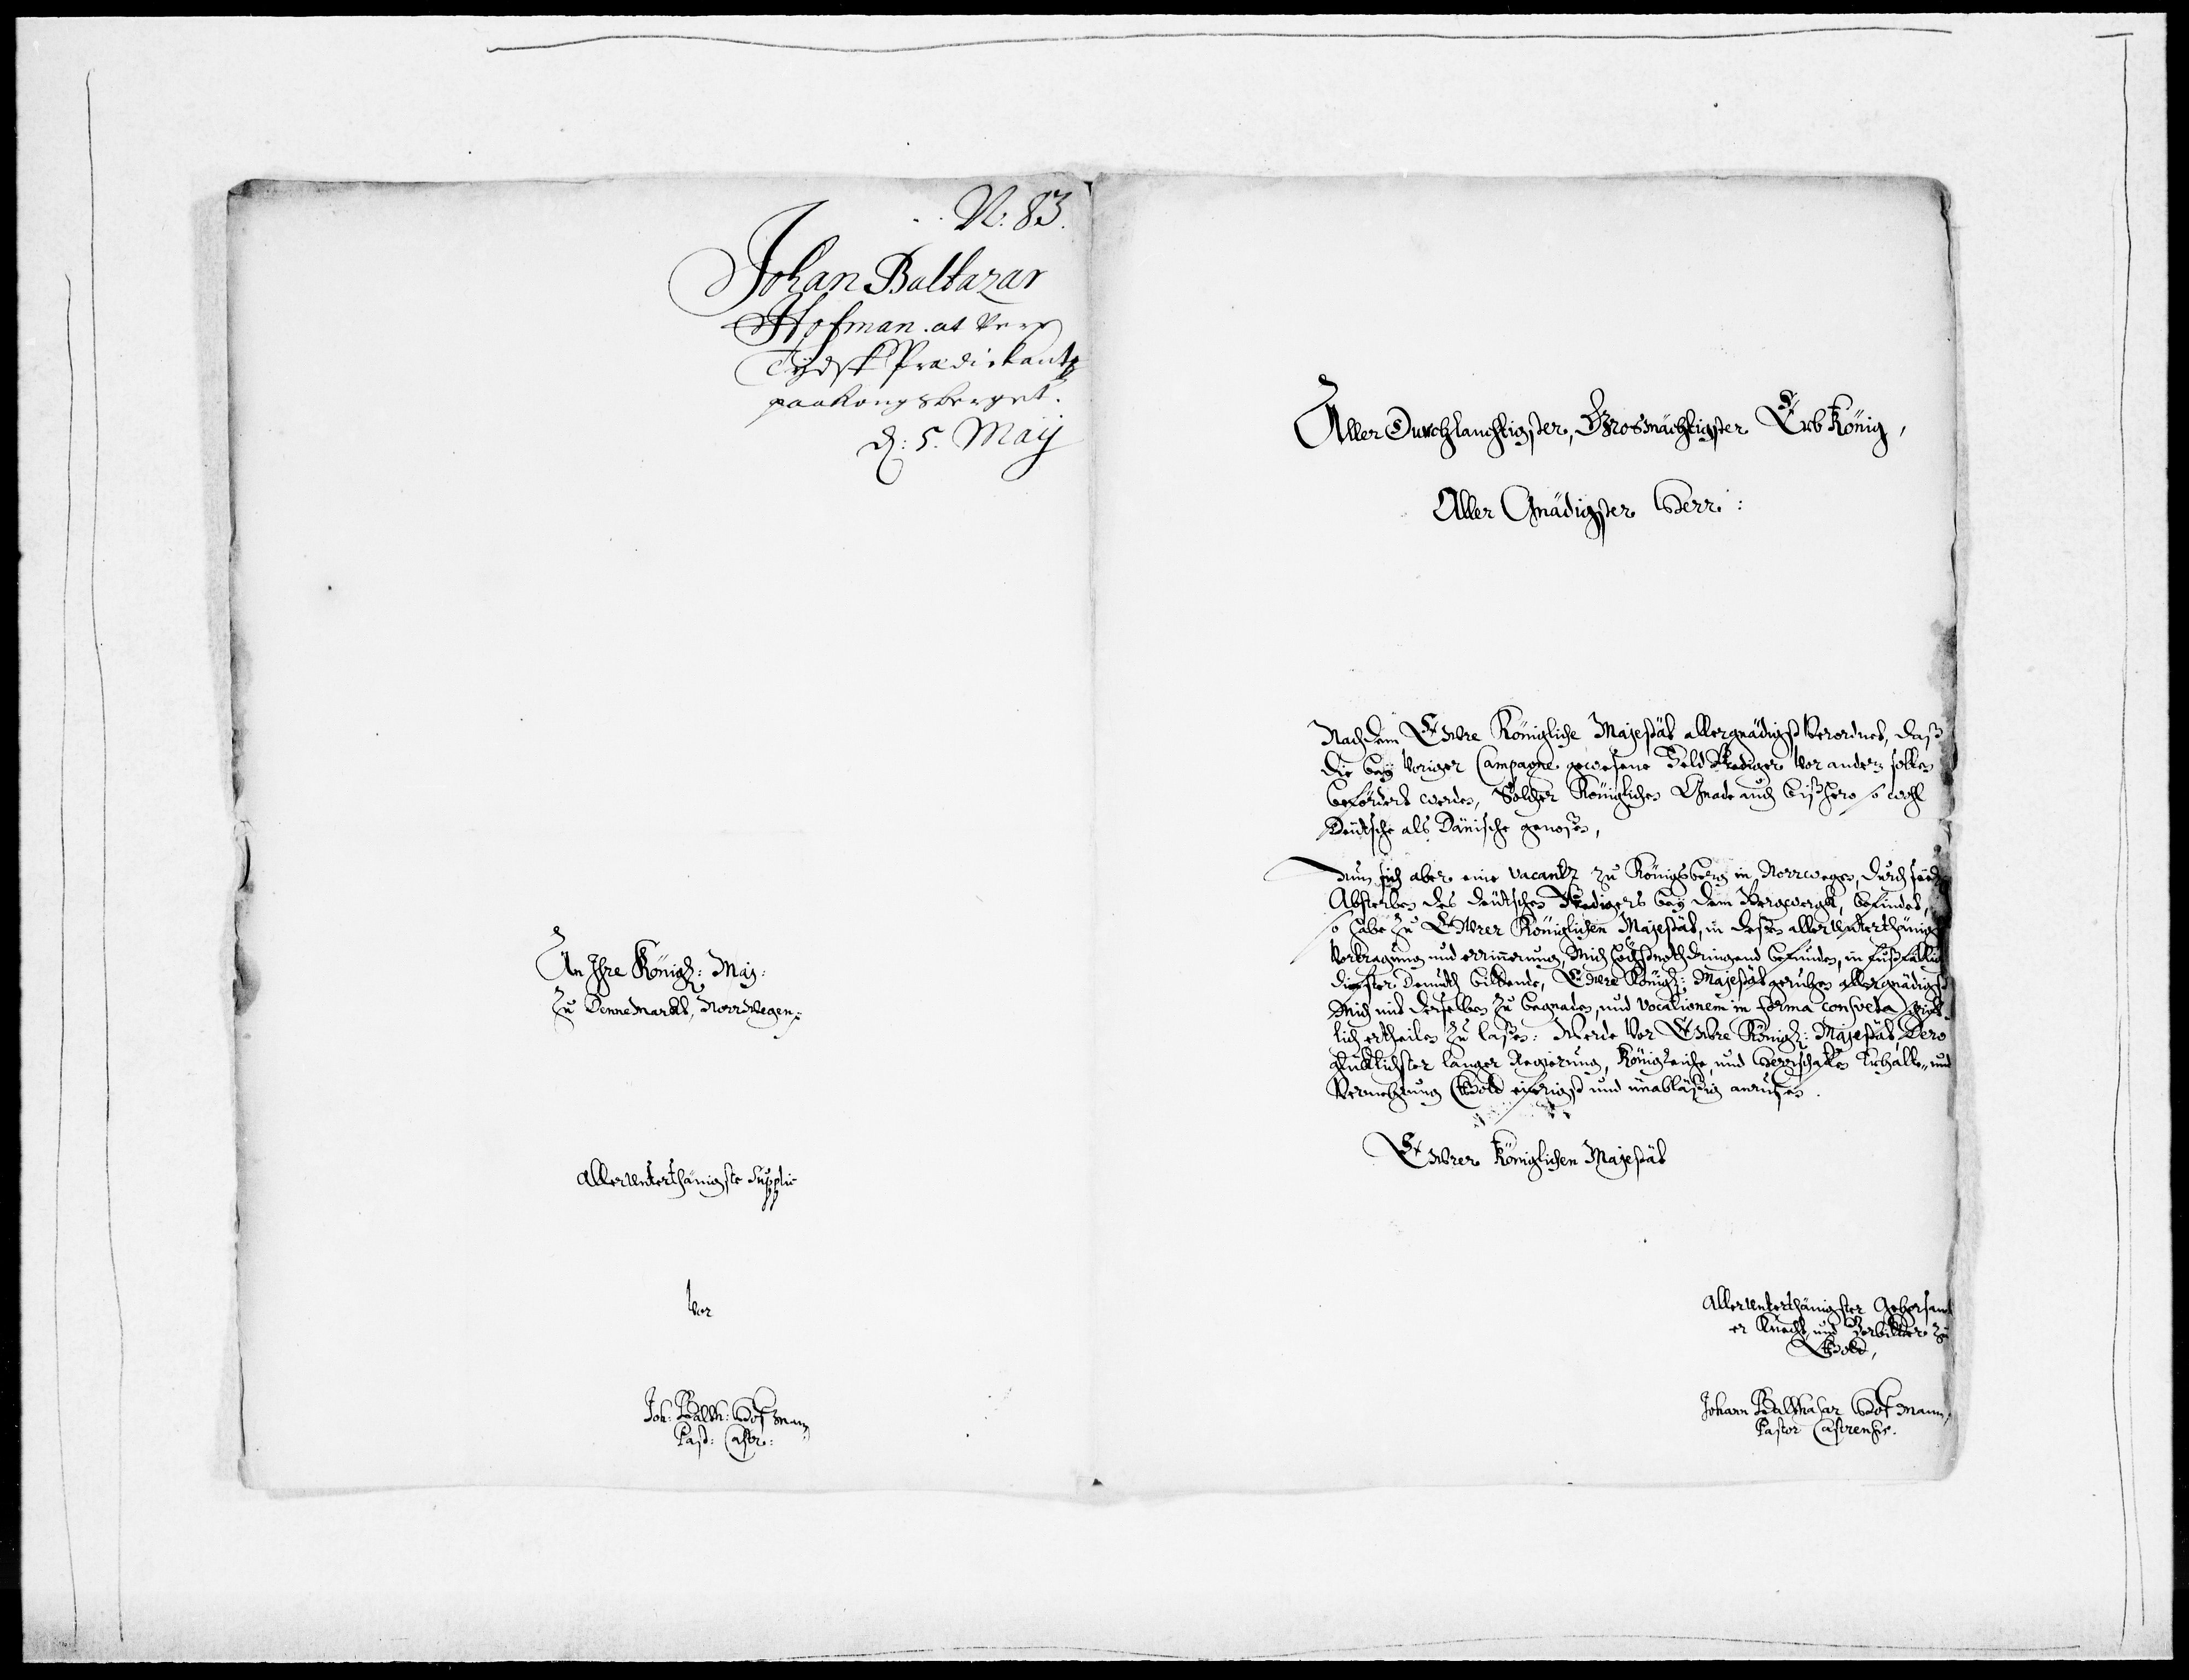 N: 83.
Johan Baltazar
Hofman. at vere
Tydsk Prædickant
paa Kongsberget.
d: 5. Maij
An Ihre Königl: Maj:
Zu Dennemarck, Norrwegen,
allerunterthänigste Supplic
Von
Joh: Balth: Hofmann
Past: Castr:
Aller Durchlauchtigster, Grosmächtigster Erb König,
Aller Gnädigster Herr:
Nachdem Ewre Königliche Majestät allergnädigst verordnet, daß
die bey voriger Campagne gewesene Feld Prediger vor andern sollen
befördert werden, Solcher Königlichen Gnade auch bißhero so wohl
Deutsche als Dänische genoßen,
Nun sich aber eine vacantz zu Königsberg in Norrwegen, durch
Absterben des deutschen Predigers bey dem Bergwergk, befindet,
so habe zu Ewrer Königlichen Majestät, in deßen allerunterthänig
Vortragung und errinnerung, Mich höchstnothdringend befunden, in fußfällig
diegster Demuth bittende, Ewre Königl: Majestät geruhen allergnädigst
Mich mit derselben zu begnaden, und Vocationem in forma consveta wirck-
lich ertheilen zu laßen: Werde vor Ewre Königl: Majestät, Dero
glücklichster langer Regierung, Königreiche, und Herrschafften Erhalt- und
Vermehrung Gott eifrigst und unabläßig anruffen.
Ewrer Königlichen Majestät
allerunterthänigster Gehorsamst
er Knecht, und Vorbitter zu
Gott,
Johann Balthasar Hofmann,
Pastor Castrensis.